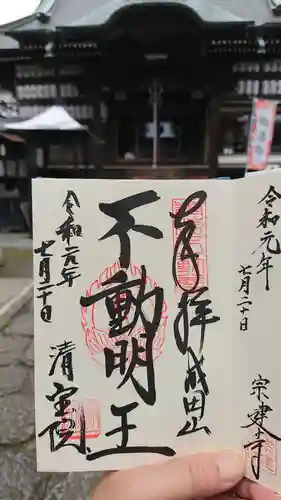 奉拝 成田山
不動明王
令和元年
七月二十日
清宝院
令和元年
七月二十日
宗建寺